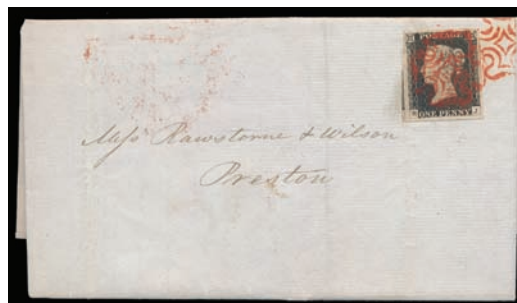 POSTAGE
ONE PENNY
Mess Rawstorne & Wilson
Preston